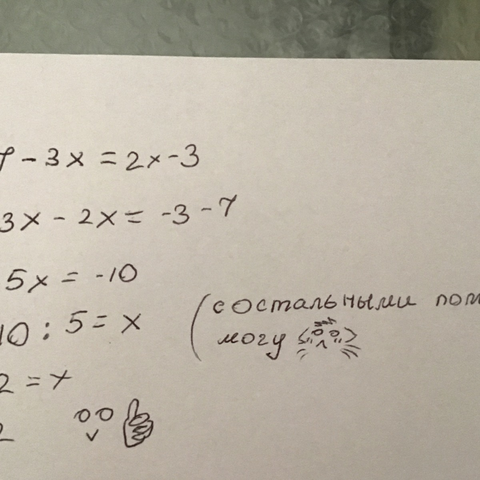 7 - 3x = 2x - 3
3x - 2x = -3 - 7
5x = -10
10 : 5 = x
(с остальными
могу
2 = x
2